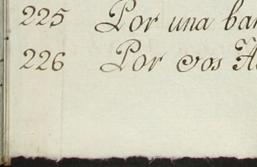 225 Por una bar
226 Por dos A